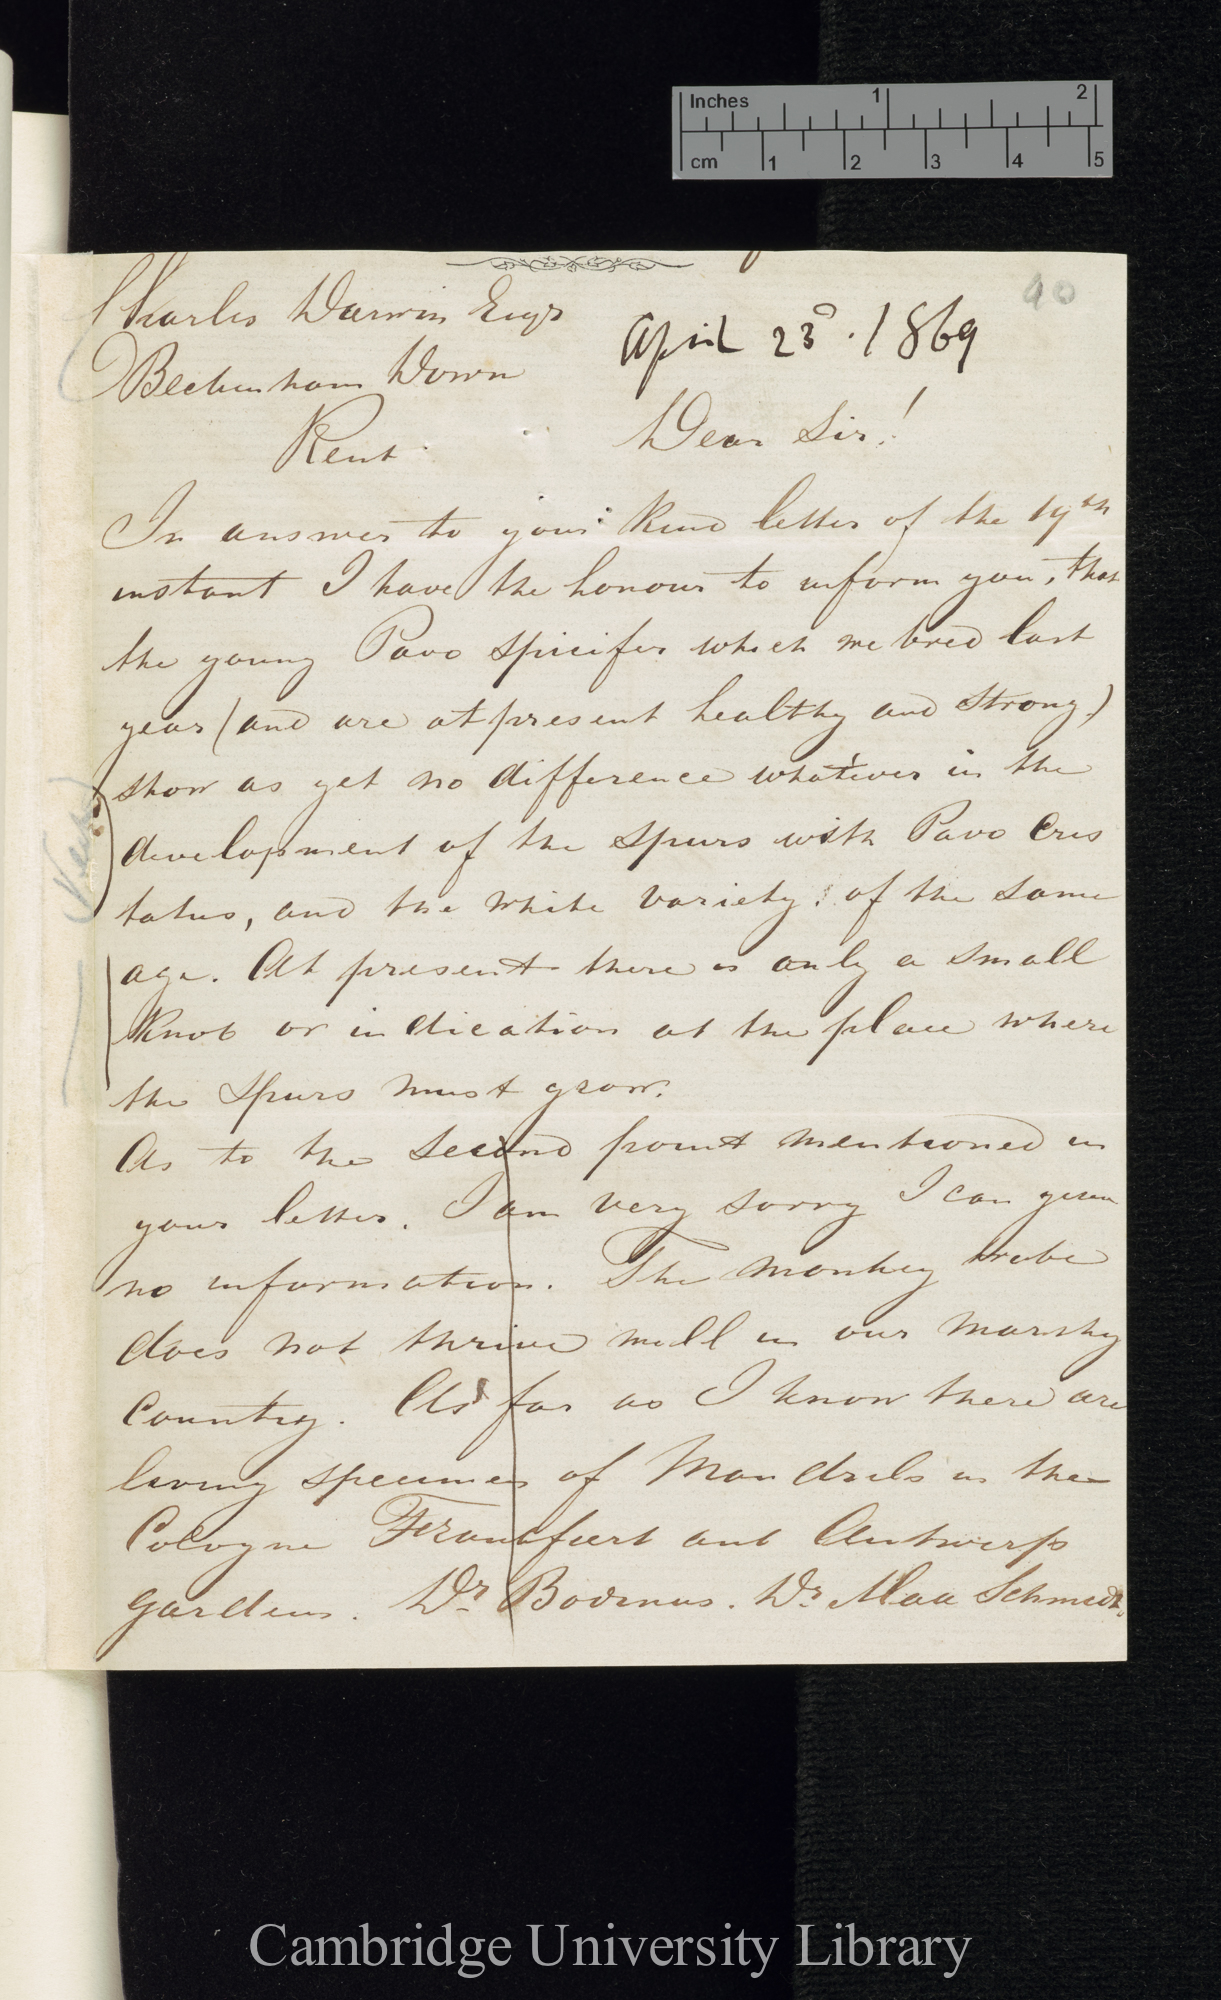 Inches 1 2
cm 1 2 3 4 5
40
Charles Darwin Esqr
April 23d. 1869
Beckenham Down
Kent.
Dear Sir!
In answer to your kind letter of the 19th
instant I have the honour to inform you, that
the young Pavo spicifer which we bred last
year (and are at present healthy and strong)
show as yet no difference whatever in the
development of the spurs with Pavo Cris
tatus, and the white variety: of the same
age. At present there is only a small
knob or indication at the place where
the spurs must grow.
As to the second point mentioned in
your letter. I am very sorry I can given
no information. The monkey tribe
does not thrive well in our marshy
country. As far as I know there are
living specimen of Mandrils in the
Cologne Frankfurt and Antwerp
gardens. Dr Bodinus. Dr Max Schmidt.
Cambridge University Library